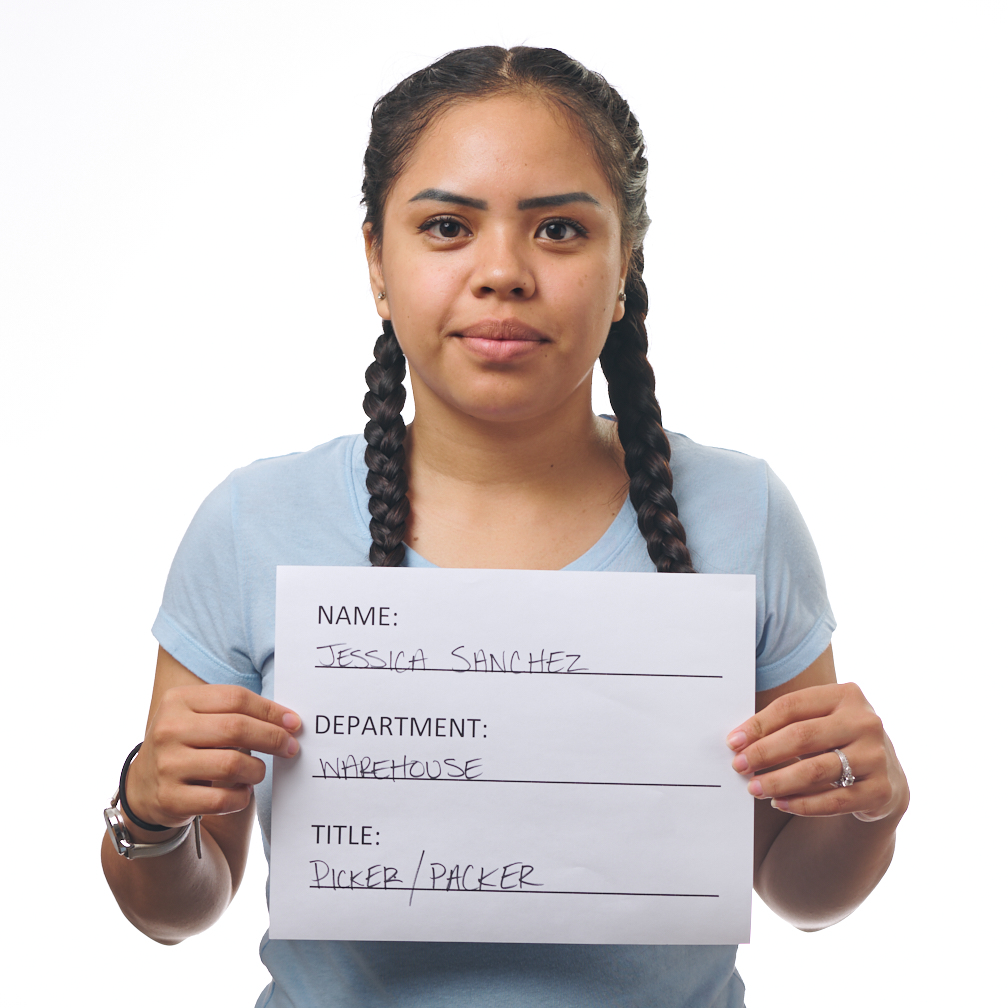 NAME:
JESSICA SANCHEZ
DEPARTMENT:
WAREHOUSE
TITLE:
PICKER/PACKER